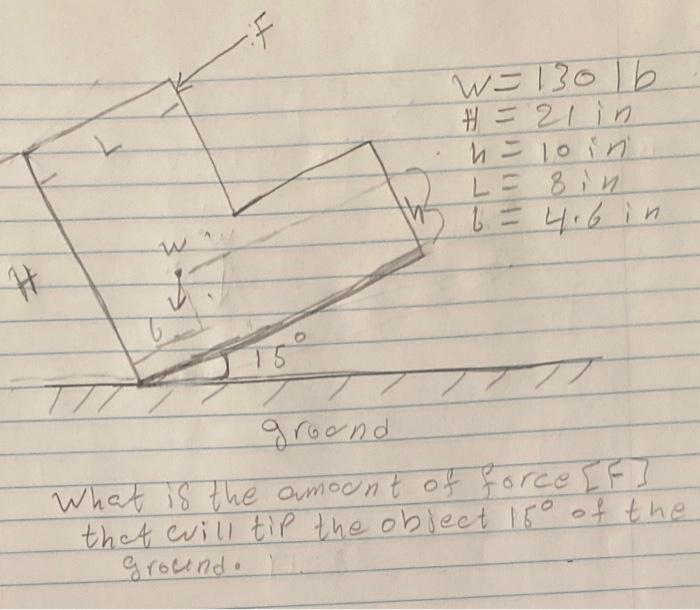 F
W = 130 lb
H = 21 in
h = 10 in
L = 8 in
b = 4.6 in
L
h
W
H
b
15°
ground
What is the amount of force [F]
that will tip the object 15° of the
ground.